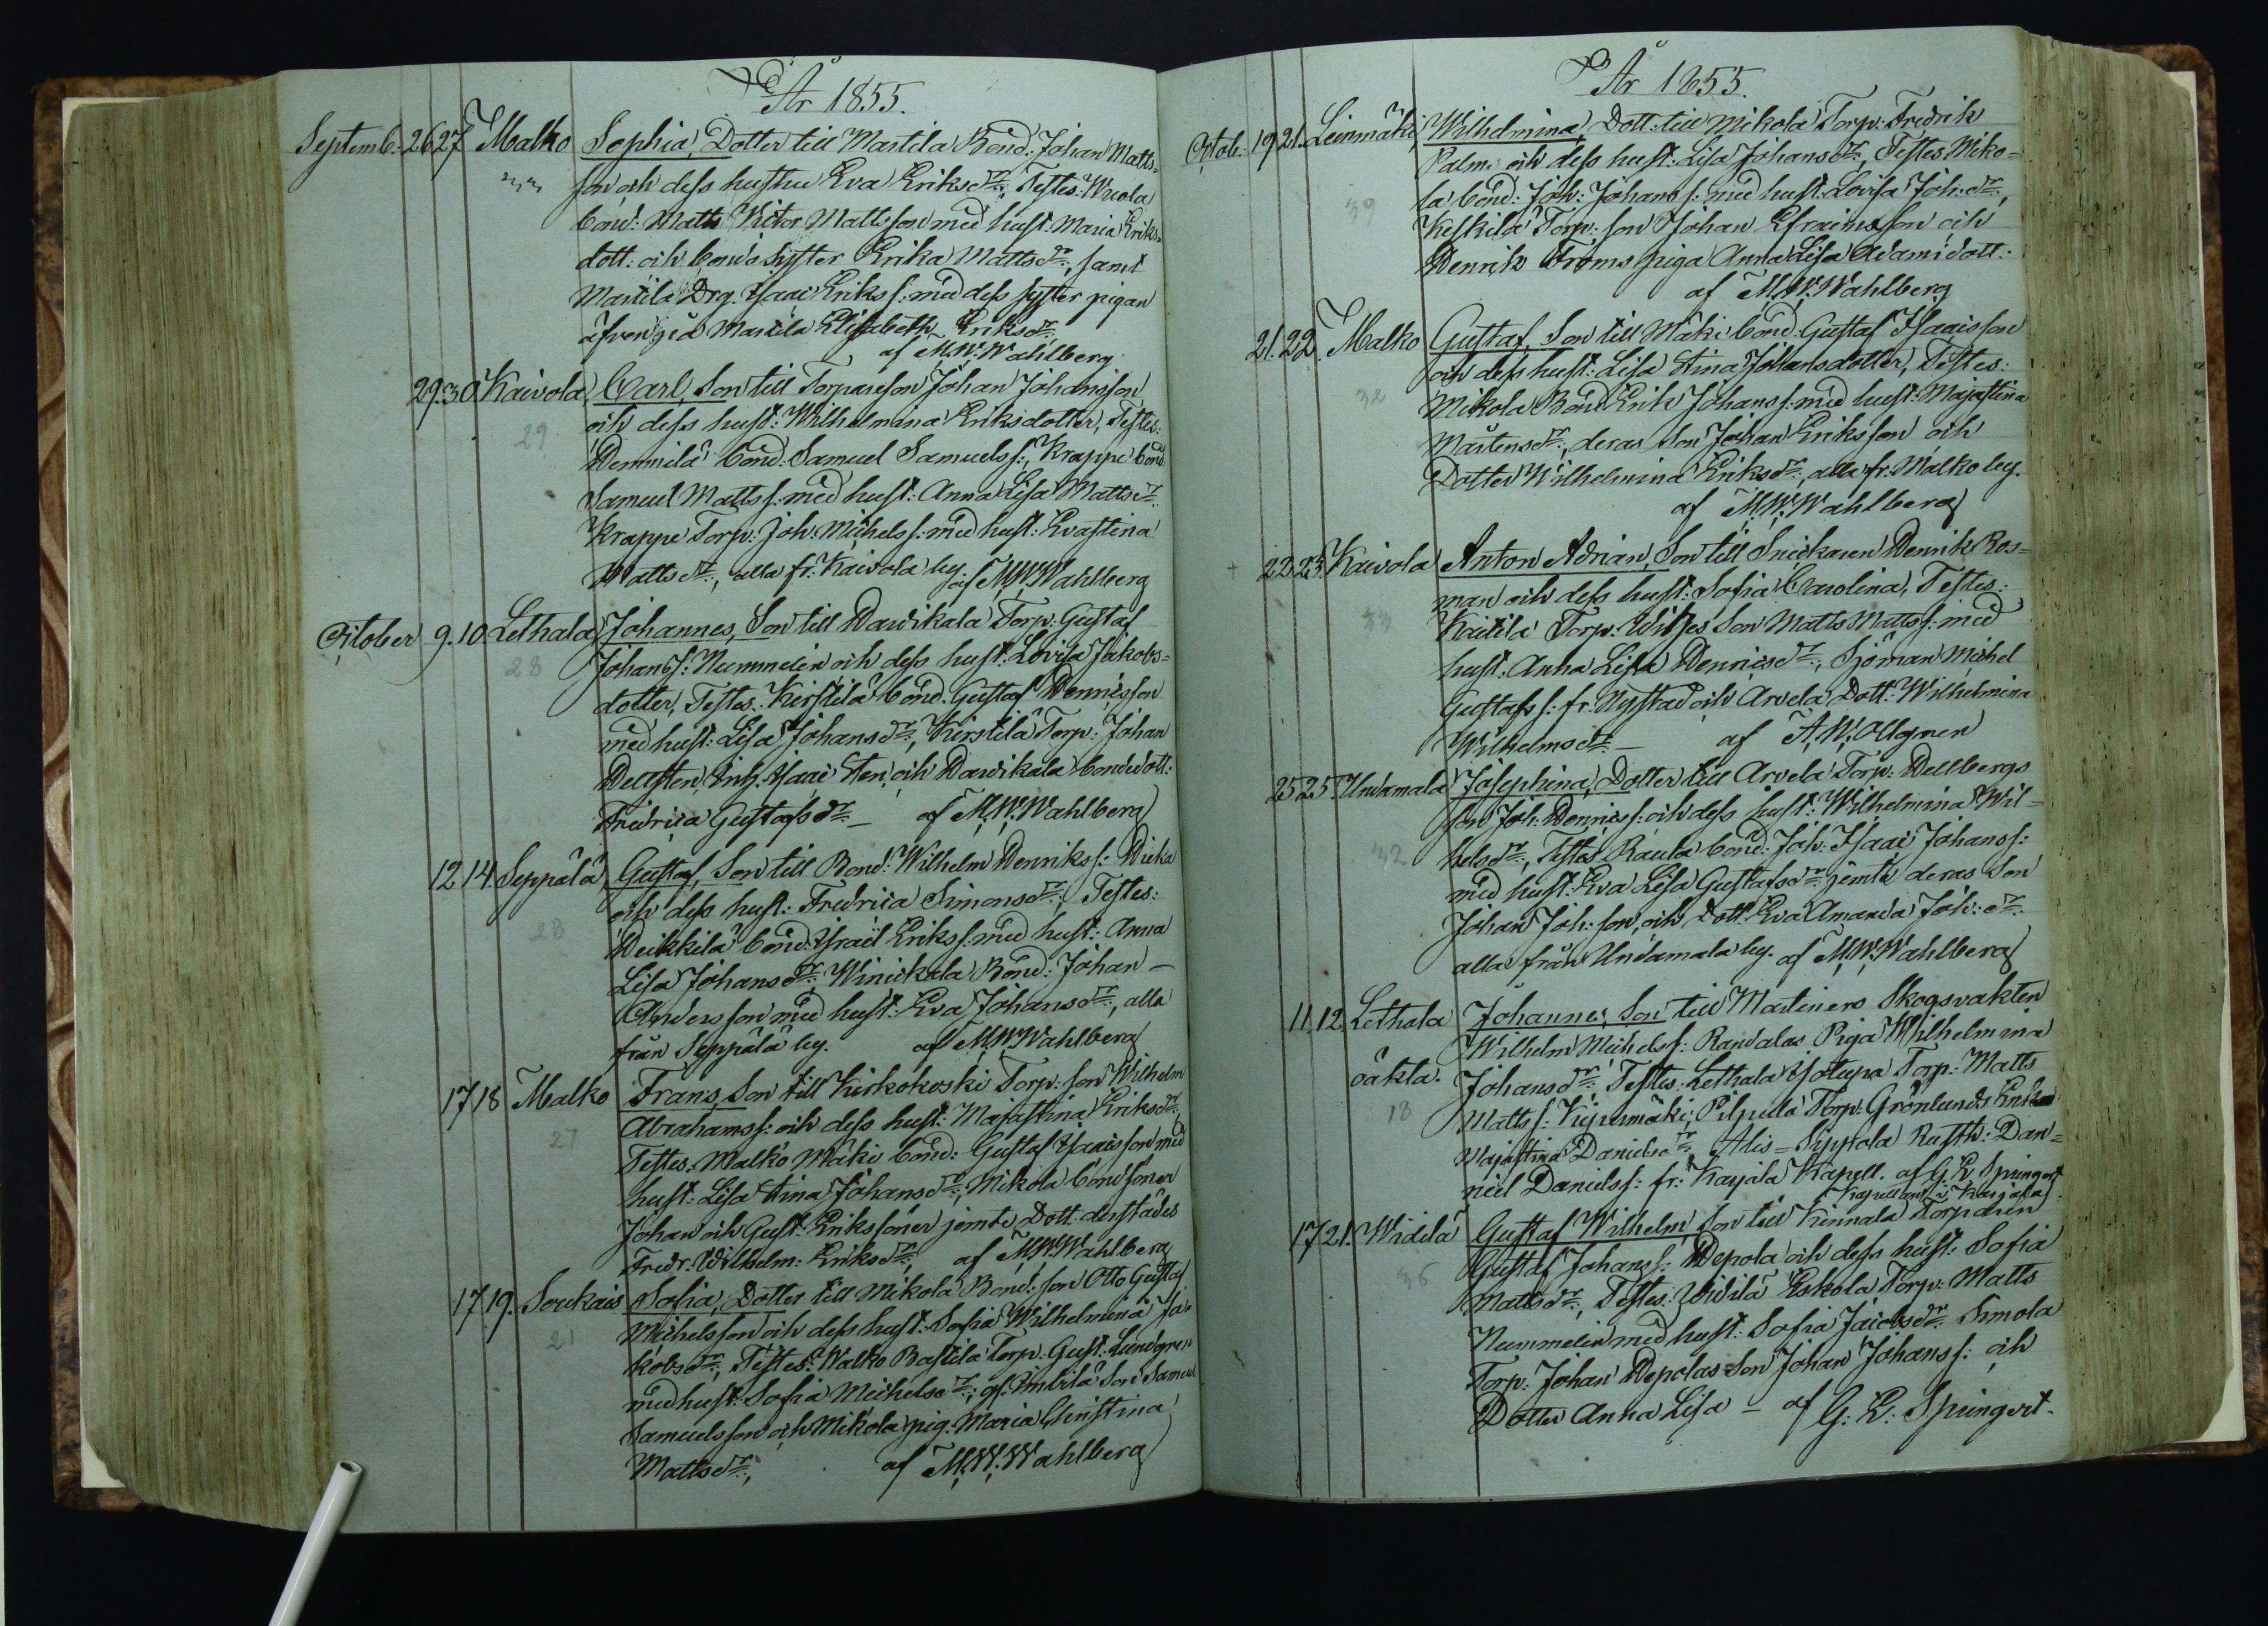 År 1855.
Septemb. 26 27 Malko Sophia, Dotter till Mastila Bond: Johan Matts=
son och dess hustru Eva Eriksdr., Testes: Wuola
bond: Matts Victor Mattsson med hust: Maria Eriks-
dott: och bonds syster Erika Mattsdr:, samt
Mastila Drg. Isaac Erikss: med dess syster pigan
äfven på Mastila Elisabeth Eriksdr:
af M.W. Wahlberg
29. 30 Kaivola, Carl, Son till Torpareson Johan Johansson
29 och dess hust: Wilhelmina Eriksdotter, Testes:
Hemmilä bond: Samuel Samuelss:, Krappe bond
Samuel Mattss: med hust: Anna Lisa Mattsdr:
Krappe Torp: Joh: Michelss: med hust: Evastina
Mattsdr:, alla fr: Kaivola by. af M.W. Wahlberg
October 9. 10. Lethala, Johannes, Son till Havikala Torp: Gustaf
28 Johanss: Nummelin och dess hust: Lovisa Jakobs=
dotter, Testes: Kirstilä bond. Gustaf Henricsson
med hust: Lisa Johansdr:, Kirstilä Torp: Johan
Hellsten, Inh. Isaac Sten, och Havikala bondedott:
Fredrica Gustafsdr: — af M.W. Wahlberg
12. 14. Seppälä, Gustaf, Son till Bond: Wilhelm Henrikss:
28 och dess hust: Fredrica Simonsdr:, Testes:
Heikkilä bond: Israel Erikss: med hust: Anna
Lisa Johansdr: Winickala Bond: Johan
Andersson med hust: Eva Johansdr:, alla
från Seppälä by. af M.W. Wahlberg
17 18 Malko Frans, Son till Kirkokoski Torp: son Wilhelm
27 Abrahamss: och dess hust: Majastina Eriksdr:,
Testes. Malko Mäki bond: Gustaf Isaacsson med
hust: Lisa Stina Johansdr:, Mikola bondsöner
Johan och Gust: Erikssöner jemte Dott: derstädes
Fredr: Wilhelm: Eriksdr:, af M.W. Wahlberg
17 19. Soukais Sofia, Dotter till Mikola Bond: son Otto Gustaf
21 Michelsson och dess hust: Sofia Wilhelmina Ja-
kobsdr:, Testes: Walko Bastila Torp: Gust: Lundgren
med hust: Sofia Michelsdr:, gf. Son: Samuel
Samuelsson och Mikola pig. Maria Christina
Mattsdr:, af M.W. Wahlberg
År 1855.
Octob. 19 21. Leinmäki, Wilhelmina, Dott: till Mikola Torp: Fredrik
Palm: och dess hust: Lisa Johansdr:, Testes Miko=
39 la bond: Joh: Johanss: med hust: Lovisa Joh:dr:,
Keskilä Torp: son Johan Efraimsson och
Henrik Froms piga Anna Lisa Adamsdott:
af M.W. Wahlberg
21. 22. Malko Gustaf, Son till Mäki bond: Gustaf Isaacsson
och dess hust: Lisa Stina Johansdotter, Testes:
32 Mikola Bond Erik Johanss: med hust: Majastina
Mårtensdr:, deras son Johan Eriksson och
Dotter Wilhelmina Eriksdr:, alla fr: Malko by.
af M.W. Wahlberg
+ 22 23. Kaivola Anton Adrian, Son till Snickaren Henrik Ros=
man och dess hust: Sofia Carolina, Testes:
33 Kaitila Torp: Son Matts Mattss: med
hust: Anna Lisa Henricsdr:, Sjöman Michel
Gustafss: fr: Nystad och Arvela Dott: Wilhelmina
Wilhelmsdr: — af A.W. Allgren
25 25. Undamala Josephina, Dotter till Arvela Torp: Hellbergs
son Joh: Henricss: och dess hust: Wilhelmina Wil=
32 helsdr:, Testes Raula bond: Joh: Isaac Johanss:
med hust: Eva Lisa Gustafsdr: jemte deras Son
Johan Joh:son, och Dott: Eva Amanda Joh:dr:
alla från Undamala by. af M.W. Wahlberg
11. 12. Lethala Johannes, Son till Martiners Skogsvakten
Wilhelm Michelss: Randalas Piga Wilhelmina
oäkta. Johansdr: Testes: Lethala Torp: Matts
18 Mattss: Kyrimäki, Pilpula Torp: Grönlunds Enka
Majastina Danielsdr:, Alis-Sippola Rusth: Dan=
niel Danielss: fr: Karjala Kapell. af G. E. Springert
Kapellan i Karjala.
17 21. Widilä Gustaf Wilhelm, Son till Kinnala Torparen
36 Gustaf Johanss: Hepola och dess hust: Sofia
Mattsdr:, Testes: Widilä Eskola Torp: Matts
Nummelin med hust: Sofia Jacobsdr: Simola
Torp: Johan Hepolas Son Johan Johanss: och
Dotter Anna Lisa — af G. E. Springert.